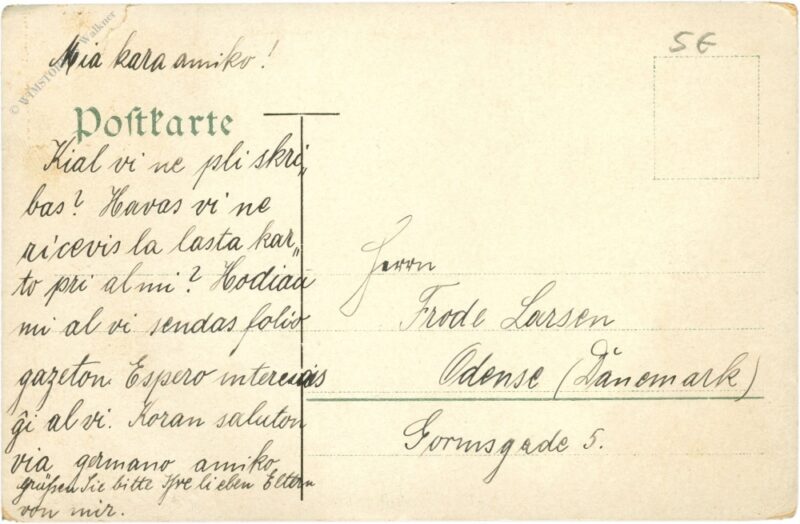 © WIMSTO Walkner
5 €
Mia kara amiko!
Postkarte
Kial vi ne pli skri„
bas? Havas vi ne
ricevis la lasta kar„
to pri al mi? Hodiaŭ
mi al vi sendas folio
gazeton. Espero interesas
ĝi al vi. Koran saluton
via germano amiko.
grüßen Sie bitte Ihre lieben Eltern
von mir.
Herrn
Frode Larsen
Odense (Dänemark)
Gormsgade 5.